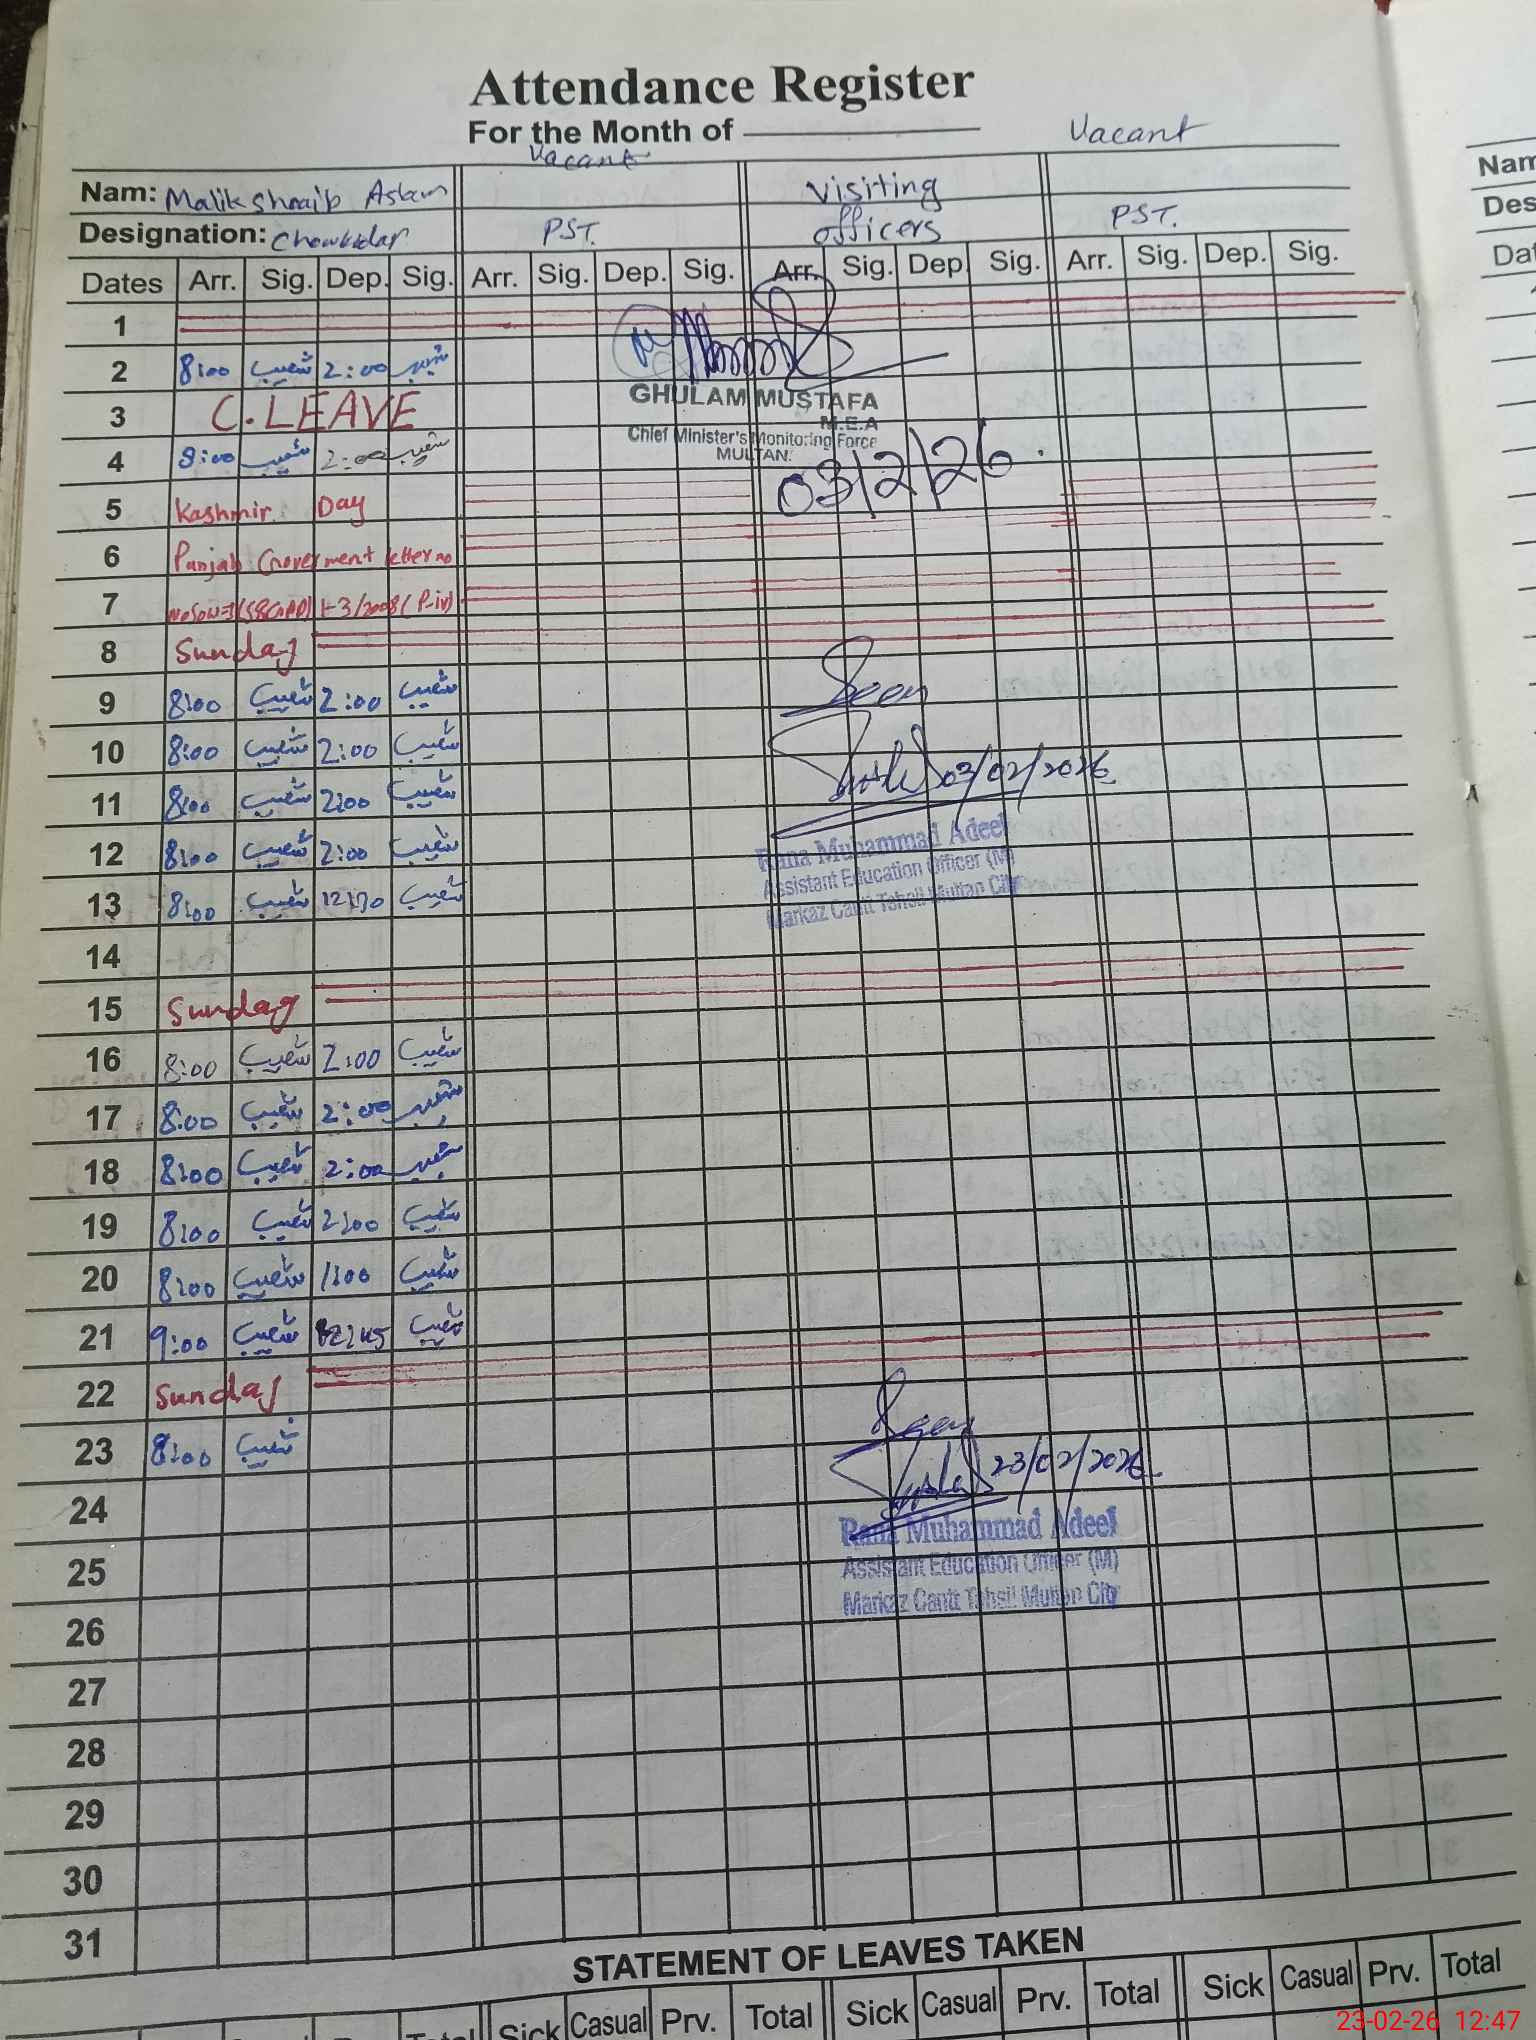 Attendance Register
For the Month of
Vacant
Vacant
Nam: Malik shoaib Aslam
visiting
Designation: Chowkidar
PST.
officers
PST.
Dates Arr. Sig. Dep. Sig. Arr. Sig. Dep. Sig. Arr. Sig. Dep. Sig. Arr. Sig. Dep. Sig.
1
2 8:00 شعیب 2:00 شعیب
GHULAM MUSTAFA
M.E.A
Chief Minister's Monitoring Force
MULTAN.
03/2/26
3 C.LEAVE
4 8:00 شعیب 2:00 شعیب
5 Kashmir Day
6 Panjab Goverment letter no
7 1-3/2008 (P-iv)
8 Sunday
9 8:00 شعیب 2:00 شعیب
Seen
10 8:00 شعیب 2:00 شعیب
03/02/2026
11 8:00 شعیب 2:00 شعیب
12 8:00 شعیب 2:00 شعیب
Rana Muhammad Adeel
Assistant Education Officer (M)
Markaz Cantt Tehsil Multan City
13 8:00 شعیب 12:30 شعیب
14
15 Sunday
16 8:00 شعیب 2:00 شعیب
17 8:00 شعیب 2:00 شعیب
18 8:00 شعیب 2:00 شعیب
19 8:00 شعیب 2:00 شعیب
20 8:00 شعیب 1:00 شعیب
21 9:00 شعیب 12:45 شعیب
22 Sunday
Seen
23 8:00 شعیب
23/02/2026
24
Rana Muhammad Adeel
Assistant Education Officer (M)
Markaz Cantt Tehsil Multan City
25
26
27
28
29
30
31
STATEMENT OF LEAVES TAKEN
Total Sick Casual Prv. Total Sick Casual Prv. Total Sick Casual Prv. Total
23-02-26 12:47
Nam
Des
Da